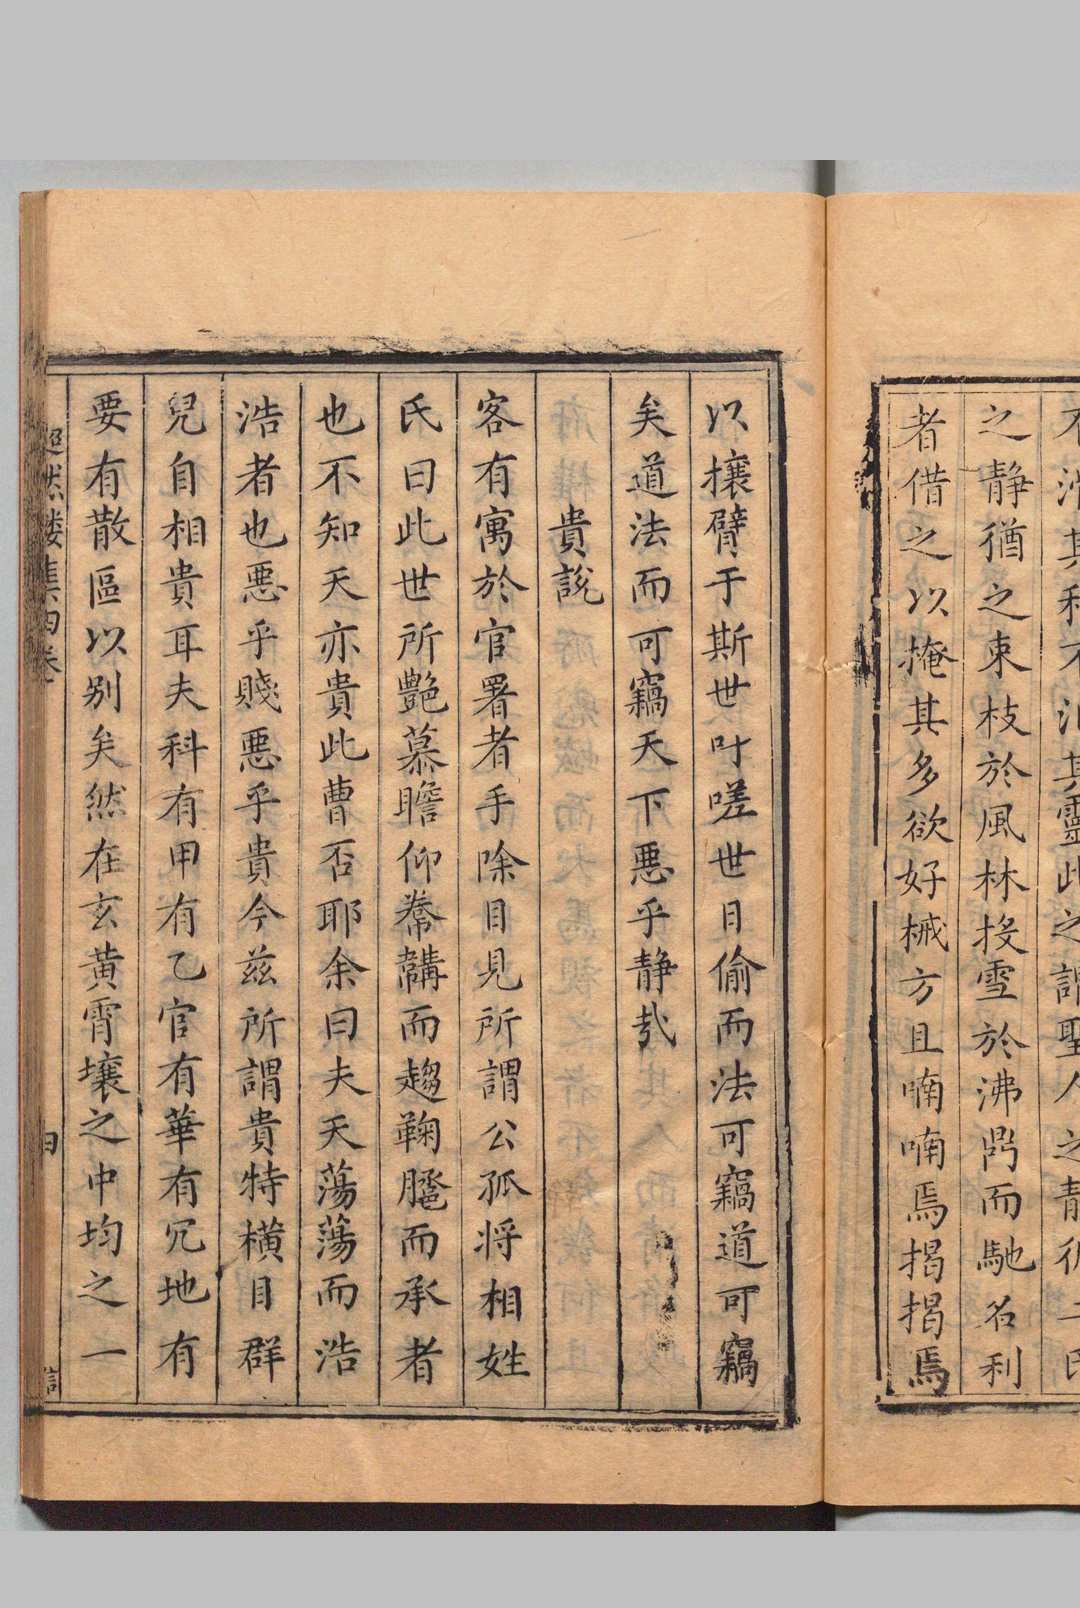 之靜猶之束枝於風林投雪於沸鼎而馳名利
者借之以掩其多欲好械方且喃喃焉揭揭焉
以攘臂于斯世吁嗟世日偷而法可竊道可竊
矣道法而可竊天下惡乎静哉
貴說
客有寓於官署者手除目見所謂公孤將相姓
氏曰此世所艷慕瞻仰帣韝而趨鞠䠆而承者
也不知天亦貴此曹否耶余曰夫天蕩蕩而浩
浩者也惡乎賤惡乎貴今茲所謂貴特橫目群
兒自相貴耳夫科有甲有乙官有華有冗地有
要有散區以别矣然在玄黃霄壤之中均之一
超然樓集四卷
四